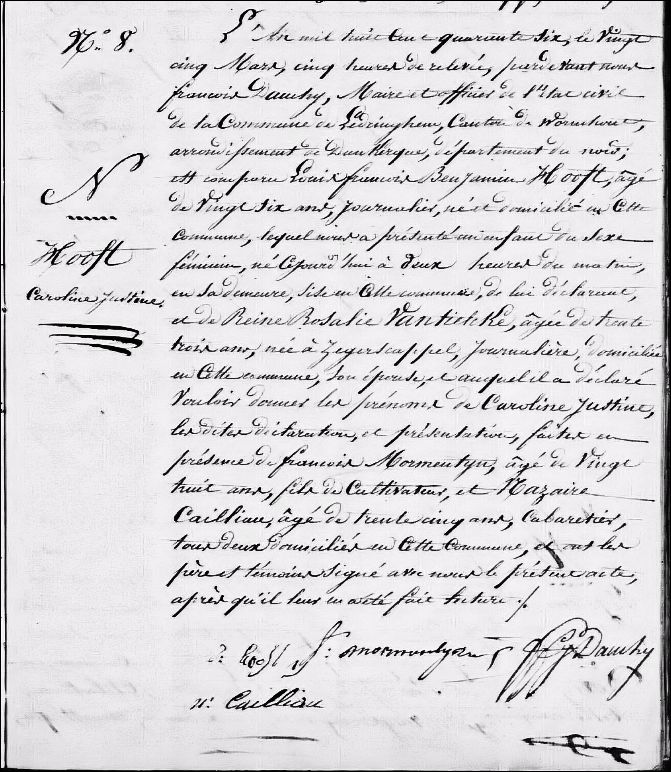 N.° 8.
L'An mil huit cent quarante six, le Vingt
cinq Mars, cinq heures de relevé, pardevant nous
françois Dauchy, Maire et officier de l'état civil
de la Commune de Ledringhem, Canton de Wormhout,
arrondissement de Dunkerque, département du nord;
est comparu Louis françois Benjamin Hooft, âgé
de Vingt Six ans, Journalier, né et domicilié en Cette
commune, lequel nous a présenté un enfant du Sexe
féminin, né Cejourd'hui à deux heures du matin,
en Sa demeure, Sise en Cette commune, de lui déclarant,
et de Reine Rosalie Vantichké, âgée de trente
trois ans, née à Zegerscappel, Journalière, domiciliée
en Cette commune, Son épouse, et auquel il a déclaré
Vouloir donner les prénoms de Caroline Justine,
les dites déclaration, et présentation, faites en
présence de françois Mormentyn, âgé de Vingt
huit ans, fils de Cultivateur, et Nazaire
Cailliau, âgé de trente cinq ans, Cabaretier,
tous deux domiciliés en Cette commune, et ont les
père et témoins Signé avec nous le présent acte,
après qu'il leur en a été fait lecture ./.
N
Hooft
Caroline Justine.
Hooft f: mormentyn
Dauchy
n: Cailliau